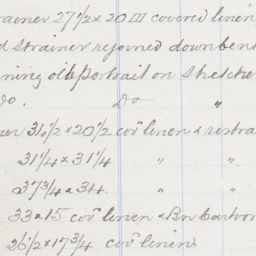 rainer 27 1/2 x 20 III covered linen
d Strainer rejoined down bent
ning old Portrait on Stretche
do. Do "
ner 31 1/2 x 20 1/2 cov^d linen & restra
31 1/4 x 31 1/4 " "
23 3/4 x 34. " "
33 x 15 cov^d linen & Bn Carton
26 1/2 x 17 3/4 cov^d linen